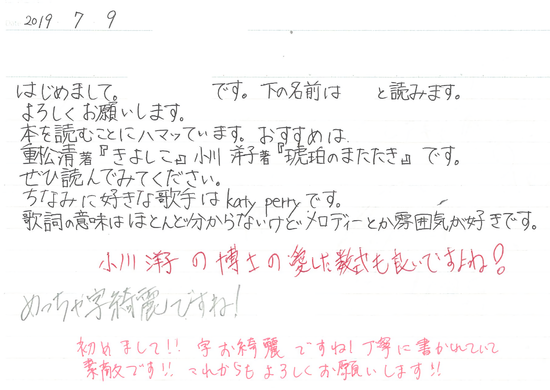 2019 7 9
はじめまして。 です。下の名前は と読みます。
よろしくお願いします。
本を読むことにハマッています。おすすめは
重松清著『きよしこ』小川洋子著『琥珀のまたたき』です。
ぜひ読んでみてください。
ちなみに好きな歌手はkaty perryです。
歌詞の意味はほとんど分からないけどメロディーとか雰囲気が好きです。
小川洋子の博士の愛した数式も良いですよね!
めっちゃ字綺麗ですね!
初めまして!! 字お綺麗ですね!丁寧に書かれていて
素敵です!! これからもよろしくお願いします!!